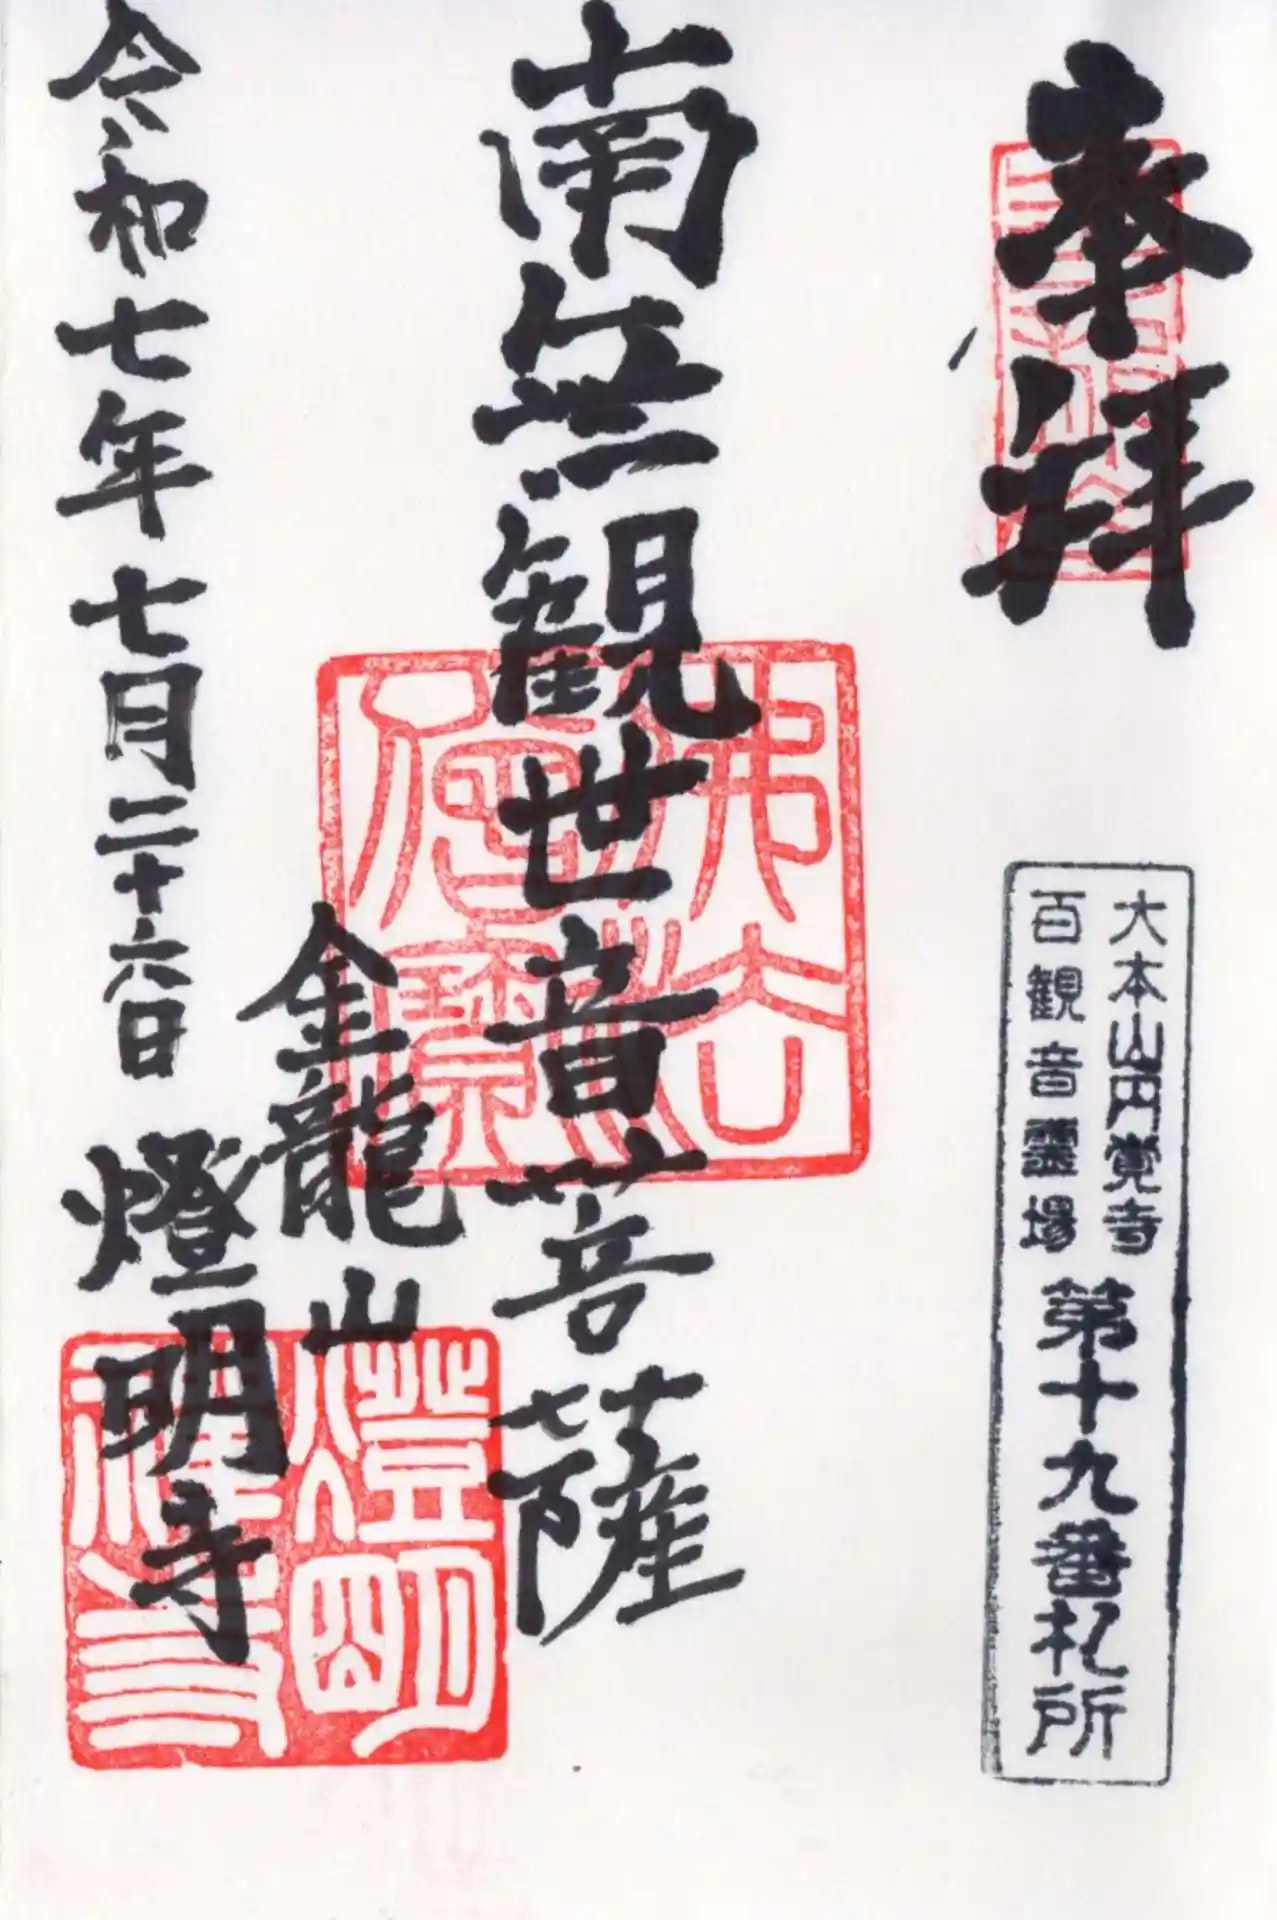 奉拝
大本山円覚寺
百観音霊場
第十九番札所
南無観世音菩薩
佛法僧寳
金龍山
燈明寺
燈明
禅寺
令和七年七月二十六日